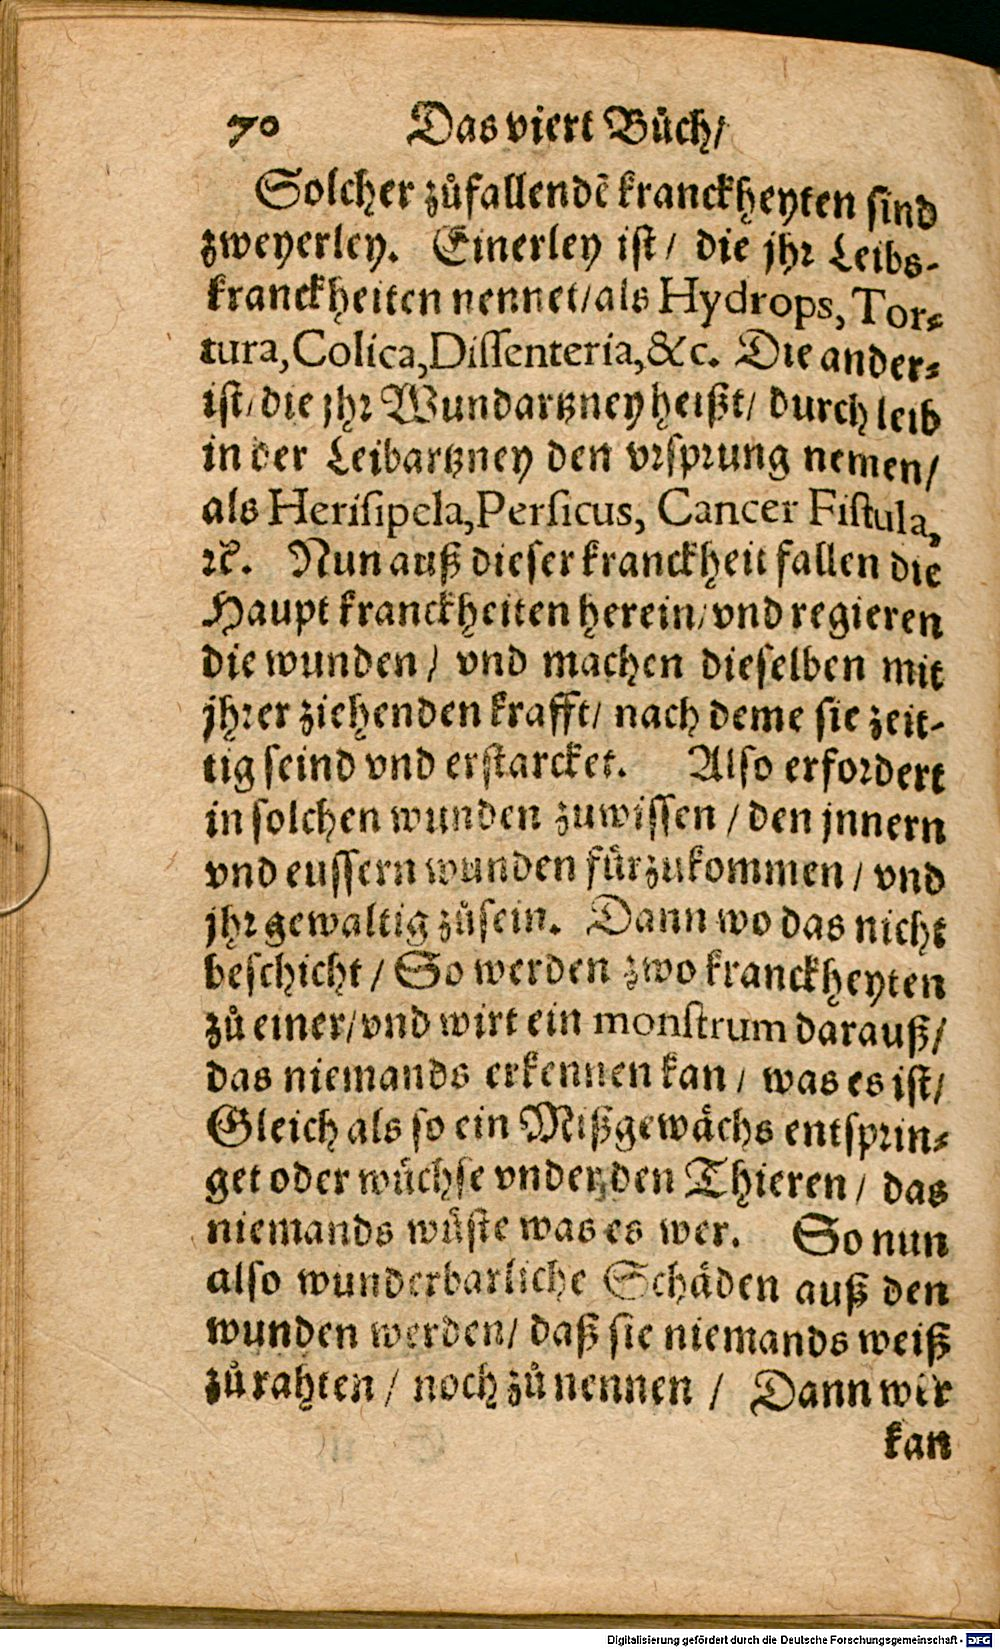 70 Das viert Bůch/
Solcher zůfallendẽ kranckheyten sind
zweyerley. Einerley ist/ die jhr Leibs-
kranckheiten nennet/als Hydrops, Tor-
tura, Colica, Dissenteria, &c. Die ander-
ist/die jhr Wundartzney heißt/ durch leib
in der Leibartzney den vrsprung nemen/
als Herisipela, Persicus, Cancer Fistula,
ꝛc̃. Nun auß dieser kranckheit fallen die
Haupt kranckheiten herein/vnd regieren
die wunden/ vnd machen dieselben mit
jhrer ziehenden krafft/ nach deme sie zeit-
tig seind vnd erstarcket. Also erfordert
in solchen wunden zuwissen/ den jnnern
vnd eussern wunden fürzukommen/ vnd
jhr gewaltig zůsein. Dann wo das nicht
beschicht/ So werden zwo kranckheyten
zů einer/vnd wirt ein monstrum darauß/
das niemands erkennen kan/ was es ist/
Gleich als so ein Mißgewächs entsprin-
get oder wüchse vnder den Thieren/ das
niemands wüste was es wer. So nun
also wunderbarliche Schäden auß den
wunden werden/ daß sie niemands weiß
zů rahten/ noch zů nennen/ Dann wer
kan
Digitalisierung gefördert durch die Deutsche Forschungsgemeinschaft - DFG